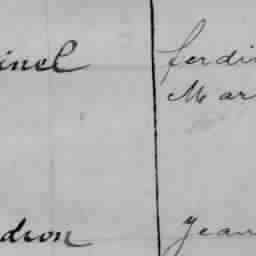 inel ferdi
Mar
dron Jean